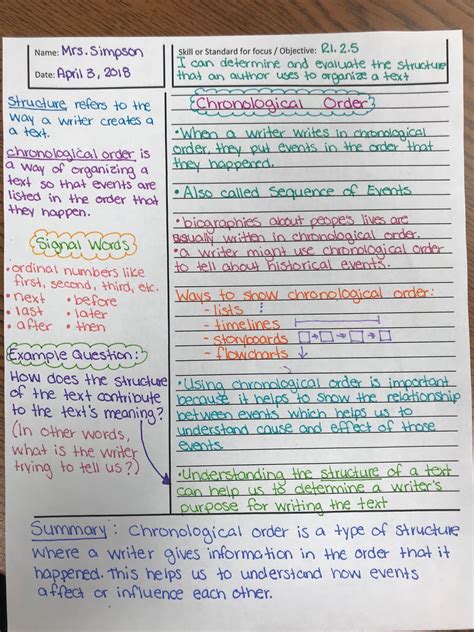 Name: Mrs. Simpson
Date: April 3, 2018
Skill or Standard for focus / Objective: R.I. 2.5
I can determine and evaluate the structure
that an author uses to organize a text
Structure refers to the
way a writer creates a
a text.
chronological order is
a way of organizing a
text so that events are
listed in the order that
they happen.
Signal Words
• ordinal numbers like
first, second, third, etc.
• next • before
• last • later
• after • then
Example Question:
How does the structure
of the text contribute
to the text's meaning?
(In other words,
what is the writer
trying to tell us?)
Chronological Order
• When a writer writes in chronological
order, they put events in the order that
they happened.
• Also called Sequence of Events
• biographies about people's lives are
usually written in chronological order.
• a writer might use chronological order
to tell about historical events.
Ways to show chronological order:
- lists
- timelines
- storyboards
- flowcharts
• Using chronological order is important
because it helps to show the relationship
between events which helps us to
understand cause and effect of those
events.
• Understanding the structure of a text
can help us to determine a writer's
purpose for writing the text
Summary: Chronological order is a type of structure
where a writer gives information in the order that it
happened. This helps us to understand how events
affect or influence each other.